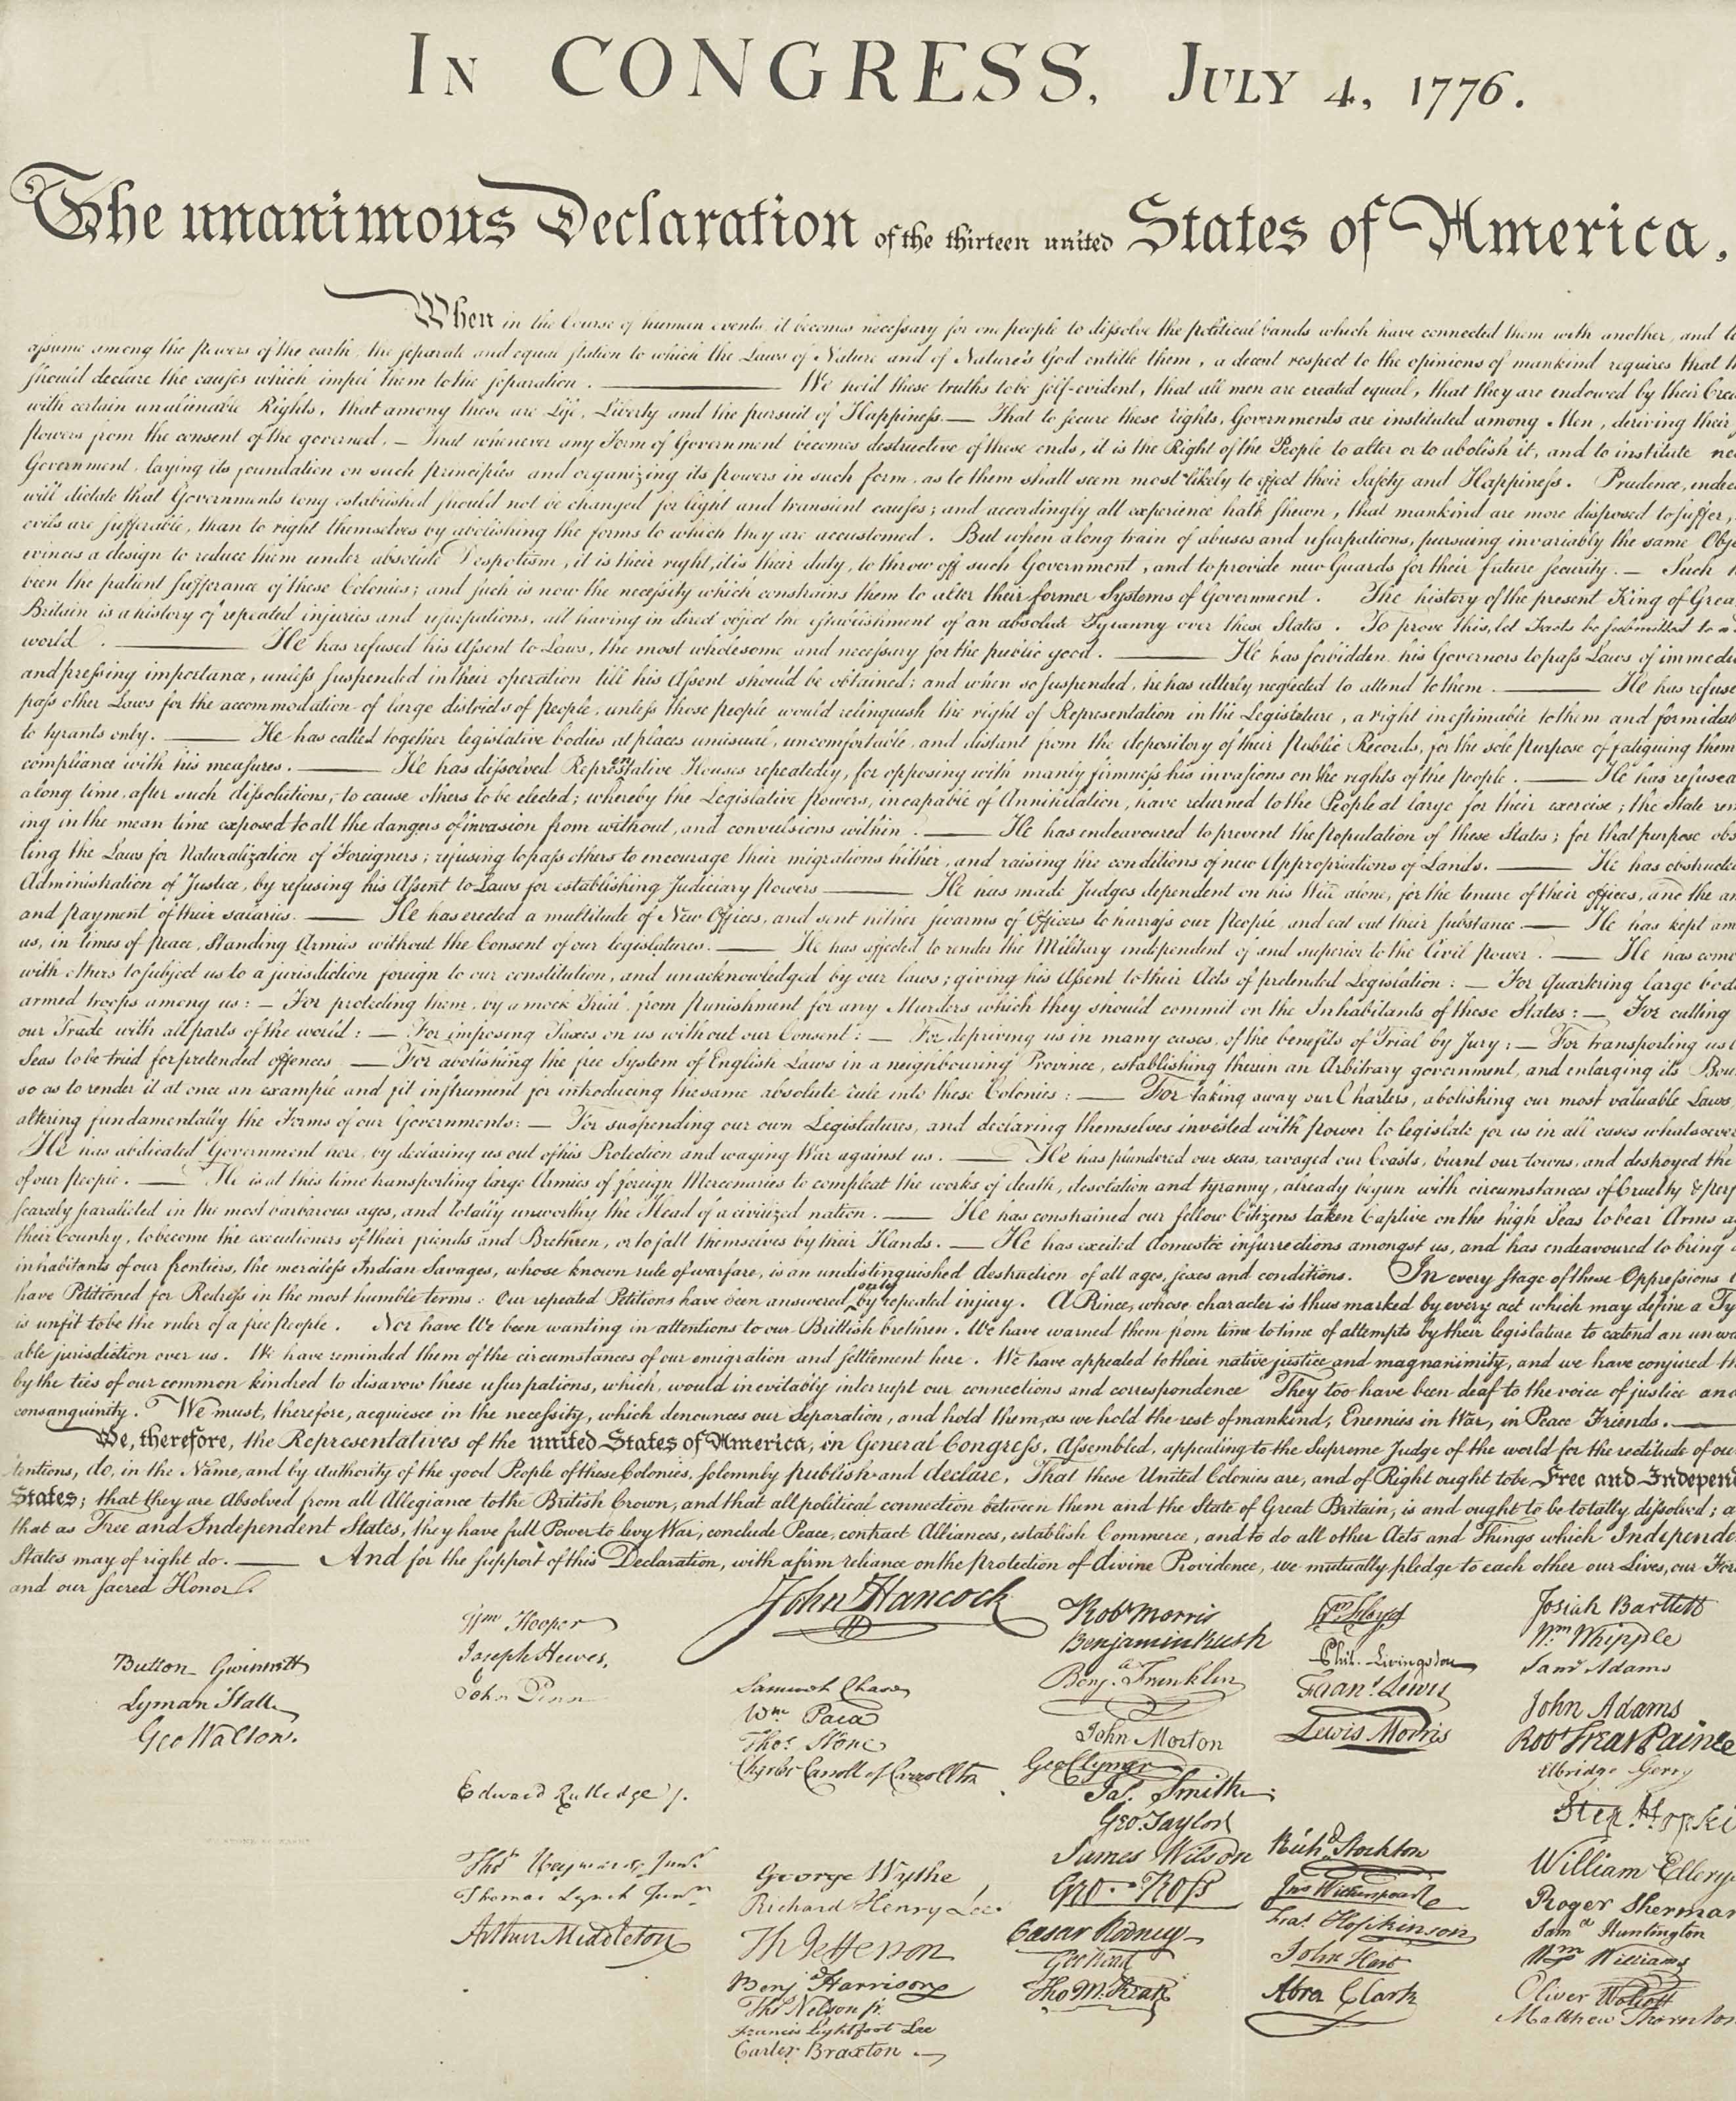 IN CONGRESS, JULY 4, 1776.
The unanimous Declaration of the thirteen united States of America,
When in the Course of human events, it becomes necessary for one people to dissolve the political bands which have connected them with another, and to
assume among the powers of the earth, the separate and equal station to which the Laws of Nature and of Nature's God entitle them, a decent respect to the opinions of mankind requires that th
should declare the causes which impel them to the separation. ——— We hold these truths to be self-evident, that all men are created equal, that they are endowed by their Crea
with certain unalienable Rights, that among these are Life, Liberty and the pursuit of Happiness. — That to secure these rights, Governments are instituted among Men, deriving their
powers from the consent of the governed, — That whenever any Form of Government becomes destructive of these ends, it is the Right of the People to alter or to abolish it, and to institute ne
Government, laying its foundation on such principles and organizing its powers in such form, as to them shall seem most likely to effect their Safety and Happiness. Prudence, indee
will dictate that Governments long established should not be changed for light and transient causes; and accordingly all experience hath shewn, that mankind are more disposed to suffer,
evils are sufferable, than to right themselves by abolishing the forms to which they are accustomed. But when a long train of abuses and usurpations, pursuing invariably the same Obje
evinces a design to reduce them under absolute Despotism, it is their right, it is their duty, to throw off such Government, and to provide new Guards for their future security. — Such h
been the patient sufferance of these Colonies; and such is now the necessity which constrains them to alter their former Systems of Government. The history of the present King of Grea
Britain is a history of repeated injuries and usurpations, all having in direct object the establishment of an absolute Tyranny over these States. To prove this, let Facts be submitted to a
world. ——— He has refused his Assent to Laws, the most wholesome and necessary for the public good. ——— He has forbidden his Governors to pass Laws of immedi
and pressing importance, unless suspended in their operation till his Assent should be obtained; and when so suspended, he has utterly neglected to attend to them. ——— He has refuse
pass other Laws for the accommodation of large districts of people, unless those people would relinquish the right of Representation in the Legislature, a right inestimable to them and formidab
to tyrants only. ——— He has called together legislative bodies at places unusual, uncomfortable, and distant from the depository of their Public Records, for the sole purpose of fatiguing them
compliance with his measures. ——— He has dissolved Representative Houses repeatedly, for opposing with manly firmness his invasions on the rights of the people. ——— He has refused
a long time, after such dissolutions, to cause others to be elected; whereby the Legislative powers, incapable of Annihilation, have returned to the People at large for their exercise; the State rem
ing in the mean time exposed to all the dangers of invasion from without, and convulsions within. ——— He has endeavoured to prevent the population of these States; for that purpose obs
ting the Laws for Naturalization of Foreigners; refusing to pass others to encourage their migrations hither, and raising the conditions of new Appropriations of Lands. ——— He has obstructe
Administration of Justice, by refusing his Assent to Laws for establishing Judiciary powers ——— He has made Judges dependent on his Will alone, for the tenure of their offices, and the am
and payment of their salaries. ——— He has erected a multitude of New Offices, and sent hither swarms of Officers to harrass our people, and eat out their substance. ——— He has kept am
us, in times of peace, Standing Armies without the Consent of our legislatures. ——— He has affected to render the Military independent of and superior to the Civil power. ——— He has com
with others to subject us to a jurisdiction foreign to our constitution, and unacknowledged by our laws; giving his Assent to their Acts of pretended Legislation: — For Quartering large bod
armed troops among us: — For protecting them, by a mock Trial, from punishment for any Murders which they should commit on the Inhabitants of these States: — For cutting
our Trade with all parts of the world: — For imposing Taxes on us without our Consent: — For depriving us in many cases, of the benefits of Trial by Jury: — For transporting us
Seas to be tried for pretended offences — For abolishing the free System of English Laws in a neighbouring Province, establishing therein an Arbitrary government, and enlarging its Bou
so as to render it at once an example and fit instrument for introducing the same absolute rule into these Colonies: — For taking away our Charters, abolishing our most valuable Laws,
altering fundamentally the Forms of our Governments: — For suspending our own Legislatures, and declaring themselves invested with power to legislate for us in all cases whatsoever
He has abdicated Government here, by declaring us out of his Protection and waging War against us. ——— He has plundered our seas, ravaged our Coasts, burnt our towns, and destroyed the
of our people. ——— He is at this time transporting large Armies of foreign Mercenaries to compleat the works of death, desolation and tyranny, already begun with circumstances of Cruelty & perf
scarcely paralleled in the most barbarous ages, and totally unworthy the Head of a civilized nation. ——— He has constrained our fellow Citizens taken Captive on the high Seas to bear Arms a
their Country, to become the executioners of their friends and Brethren, or to fall themselves by their Hands. — He has excited domestic insurrections amongst us, and has endeavoured to bring
inhabitants of our frontiers, the merciless Indian Savages, whose known rule of warfare, is an undistinguished destruction of all ages, sexes and conditions. In every stage of these Oppressions
have Petitioned for Redress in the most humble terms: Our repeated Petitions have been answered only by repeated injury. A Prince, whose character is thus marked by every act which may define a Ty
is unfit to be the ruler of a free people. Nor have We been wanting in attentions to our Brittish brethren. We have warned them from time to time of attempts by their legislature to extend an unwa
able jurisdiction over us. We have reminded them of the circumstances of our emigration and settlement here. We have appealed to their native justice and magnanimity, and we have conjured th
by the ties of our common kindred to disavow these usurpations, which, would inevitably interrupt our connections and correspondence They too have been deaf to the voice of justice and
consanguinity. We must, therefore, acquiesce in the necessity, which denounces our Separation, and hold them, as we hold the rest of mankind, Enemies in War, in Peace Friends. ———
We, therefore, the Representatives of the united States of America, in General Congress, Assembled, appealing to the Supreme Judge of the world for the rectitude of ou
tentions, do, in the Name, and by Authority of the good People of these Colonies, solemnly publish and declare, That these United Colonies are, and of Right ought to be Free and Independ
States; that they are Absolved from all Allegiance to the British Crown, and that all political connection between them and the State of Great Britain, is and ought to be totally dissolved; a
that as Free and Independent States, they have full Power to levy War, conclude Peace, contract Alliances, establish Commerce, and to do all other Acts and Things which Independe
States may of right do. ——— And for the support of this Declaration, with a firm reliance on the protection of divine Providence, we mutually pledge to each other our Lives, our For
and our sacred Honor.
Button Gwinnett
Lyman Hall
Geo Walton.
Wm Hooper
Joseph Hewes,
John Penn
Edward Rutledge /.
Thos Heyward Junr.
Thomas Lynch Junr.
Arthur Middleton
John Hancock
Samuel Chase
Wm. Paca
Thos. Stone
Charles Carroll of Carrollton
George Wythe
Richard Henry Lee.
Th Jefferson
Benj Harrison
Thos Nelson jr.
Francis Lightfoot Lee
Carter Braxton
Robt Morris
Benjamin Rush
Benja. Franklin
John Morton
Geo Clymer
Jas. Smith
Geo. Taylor
James Wilson
Geo. Ross
Caesar Rodney
Geo Read
Tho M:Kean
Wm Floyd
Phil. Livingston
Frans. Lewis
Lewis Morris
Richd Stockton
Jno Witherspoon
Fras. Hopkinson
John Hart
Abra Clark
Josiah Bartlett
Wm Whipple
Saml Adams
John Adams
Robt Treat Paine
Elbridge Gerry
Step. Hopki
William Ellery
Roger Sherman
Samel Huntington
Wm Williams
Oliver Wolcott
Matthew Thornton